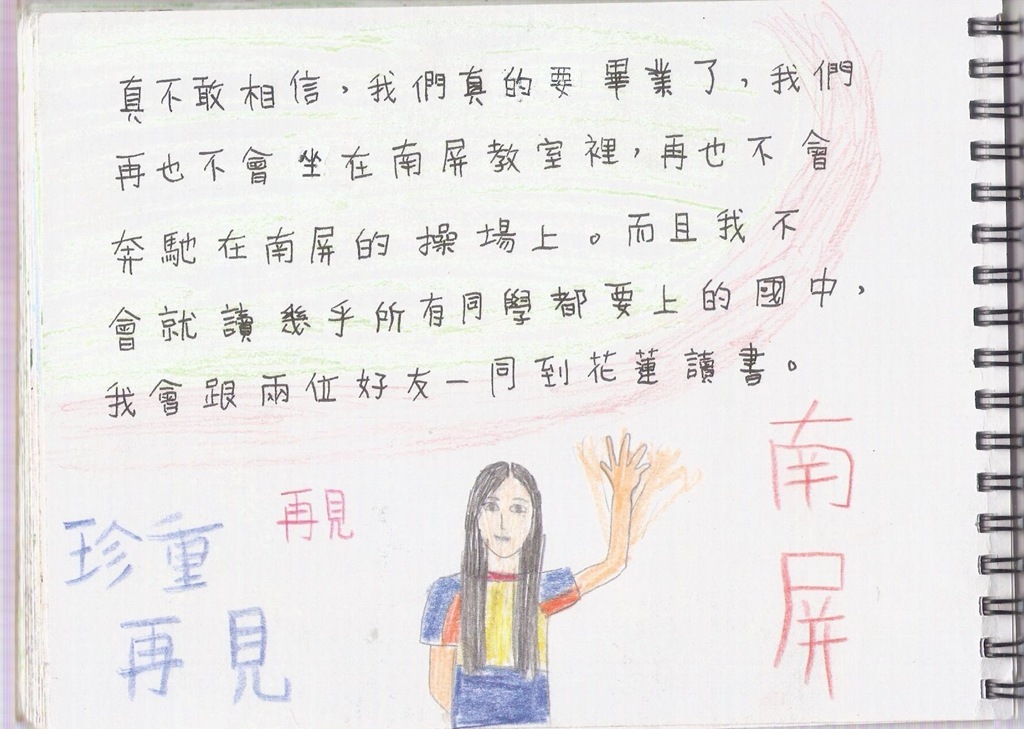 真不敢相信，我們真的要畢業了，我們
再也不會坐在南屏教室裡，再也不會
奔馳在南屏的操場上。而且我不
會就讀幾乎所有同學都要上的國中，
我會跟兩位好友一同到花蓮讀書。
南
屏
再見
珍重
再見